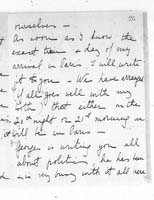 ourselves —
As soon as I know the
exact hour & day of my
arrival in Paris I will write
it to you — We have arranged
if all goes well with my
that either on the
20th night or 21st morning we
will be in Paris —
George is writing you all
about politics, he has been
& is very busy with it all